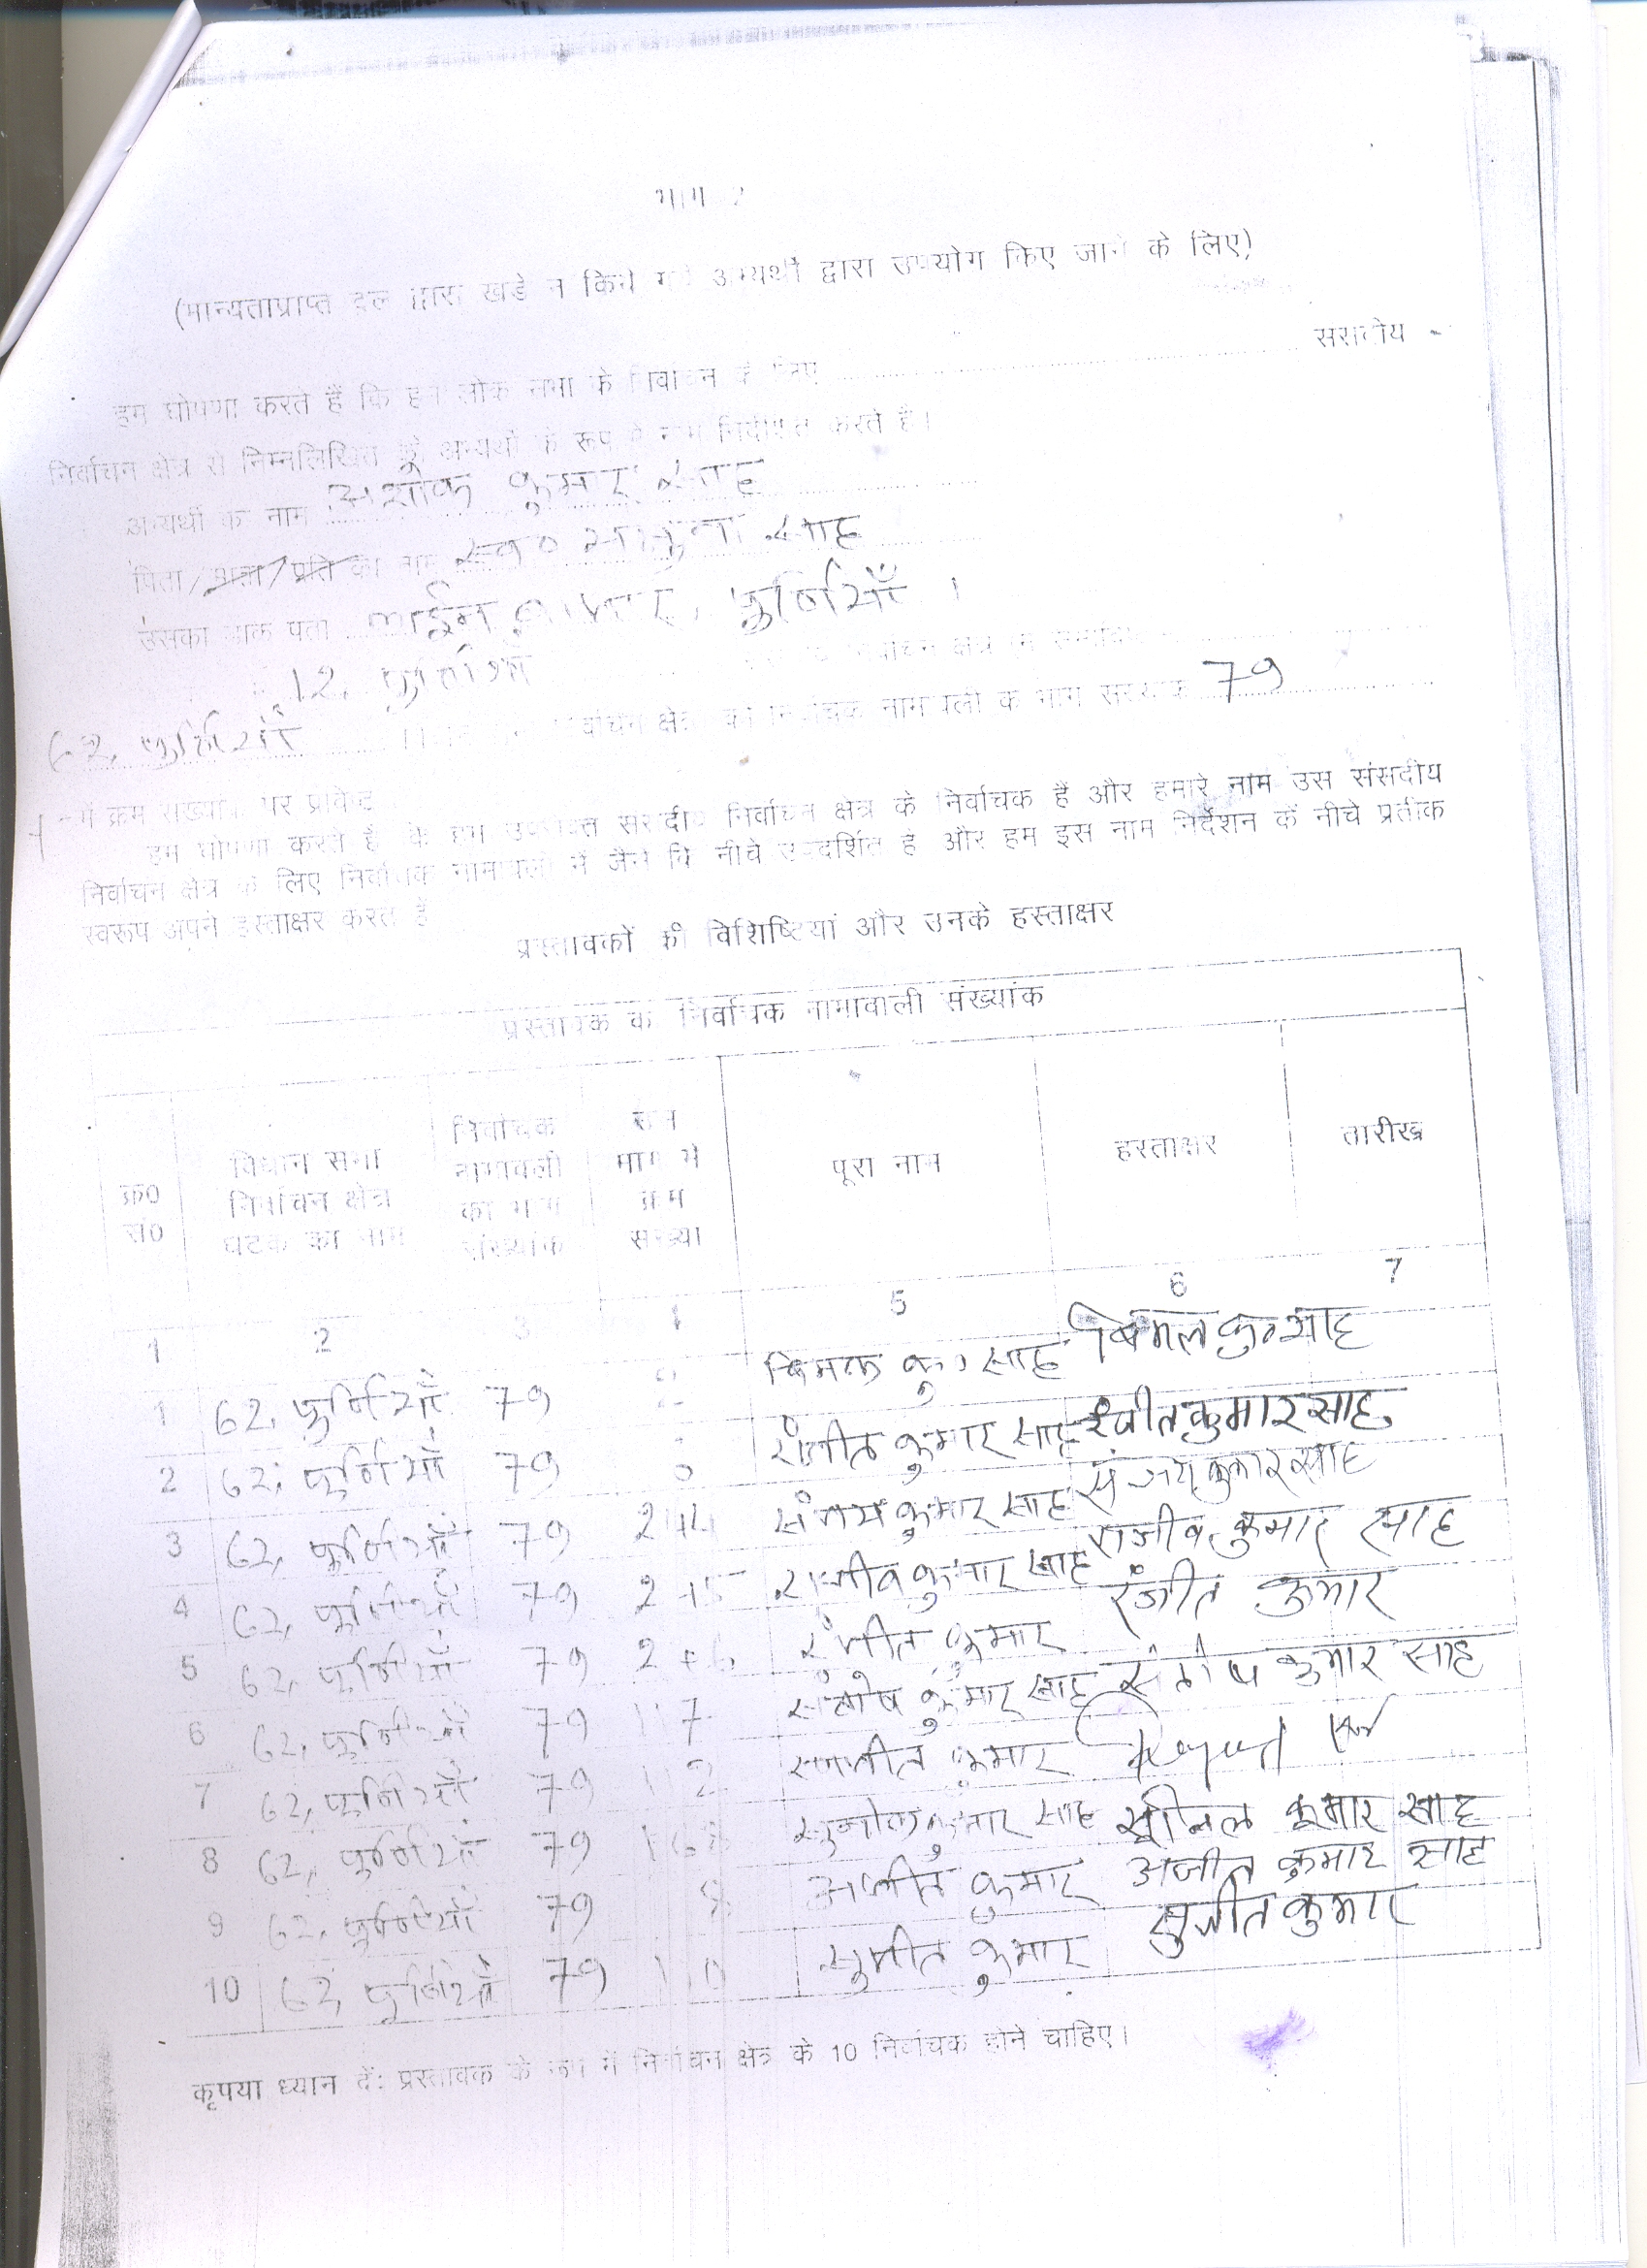 भाग 2
(मान्यताप्राप्त दल द्वारा खडे न किये गये अभ्यर्थी द्वारा उपयोग किए जाने के लिए)
हम घोषणा करते हैं कि हम लोक सभा के निर्वाचन के लिए ससदीय
निर्वाचन क्षेत्र से निम्नलिखित को अभ्यर्थी के रूप में नाम निर्देशित करते है।
अभ्यर्थी का नाम अशोक कुमार साह
पिता/माता/पति का नाम स्व० साह
उसका डाक पता लाईन बाजार, पूर्णियाँ ।
12, पूर्णियाँ निर्वाचन क्षेत्र
62, पूर्णियाँ निर्वाचन क्षेत्र की निर्वाचक नामावली के भाग संख्यांक 79
में क्रम संख्या पर प्रविष्ट
हम घोषणा करते हैं कि हम उपरोक्त संसदीय निर्वाचन क्षेत्र के निर्वाचक हैं और हमारे नाम उस संसदीय
निर्वाचन क्षेत्र के लिए निर्वाचक नामावली में जैसे कि नीचे उपदर्शित है और हम इस नाम निर्देशन के नीचे प्रतीक
स्वरूप अपने हस्ताक्षर करते हैं
प्रस्तावकों की विशिष्टियां और उनके हस्ताक्षर
प्रस्तावक का निर्वाचक नामावाली संख्यांक
क्र० सं० विधान सभा निर्वाचन क्षेत्र घटक का नाम निर्वाचक नामावली का भाग संख्यांक उस भाग में क्रम संख्या पूरा नाम हस्ताक्षर तारीख
1 2 3 4 5 6 7
1 62, पूर्णियाँ 79 बिमल कु० साह बिमल कु० साह
2 62, पूर्णियाँ 79 रंजीत कुमार साह रंजीत कुमार साह
3 62, पूर्णियाँ 79 244 संजय कुमार साह संजय कुमार साह
4 62, पूर्णियाँ 79 245 राजीव कुमार साह राजीव कुमार साह
5 62, पूर्णियाँ 79 246 रंजीत कुमार रंजीत कुमार
6 62, पूर्णियाँ 79 संतोष कुमार साह संतोष कुमार साह
7 62, पूर्णियाँ 79 कुमार
8 62, पूर्णियाँ 79 कुमार साह कुमार साह
9 62, पूर्णियाँ 79 अजीत कुमार अजीत कुमार साह
10 62, पूर्णियाँ 79 सुजीत कुमार सुजीत कुमार
कृपया ध्यान दें: प्रस्तावक के रूप में निर्वाचन क्षेत्र के 10 निर्वाचक होने चाहिए।